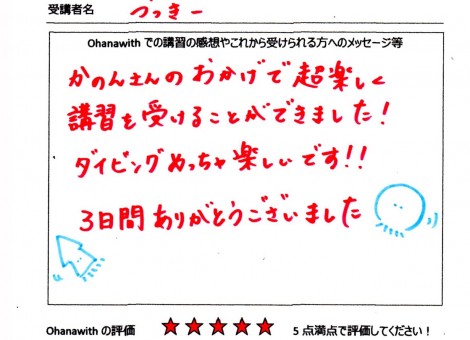 受講者名 づっきー
Ohanawith での講習の感想やこれから受けられる方へのメッセージ等
かのんさんのおかげで超楽しく
講習を受けることができました!
ダイビングめっちゃ楽しいです!!
3日間ありがとうございました
Ohanawith の評価 ★★★★★ 5点満点で評価してください!